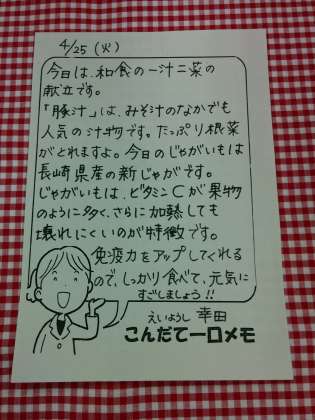 4/25 (火)
今日は、和食の一汁二菜の
献立です。
「豚汁」は、みそ汁のなかでも
人気の汁物です。たっぷり根菜
がとれますよ。今日のじゃがいもは
長崎県産の新じゃがです。
じゃがいもは、ビタミンCが果物
のように多く、さらに加熱しても
壊れにくいのが特徴です。
免疫力をアップしてくれる
ので、しっかり食べて、元気に
すごしましょう!!
えいようし 幸田
こんだて一口メモ